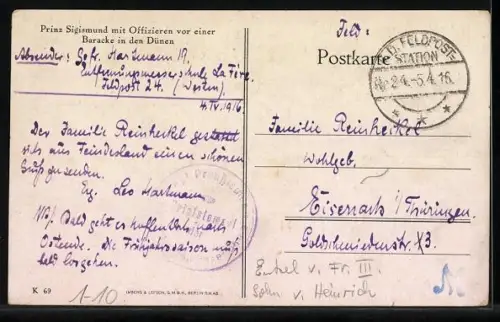 Prinz Sigismund mit Offizieren vor einer
Baracke in den Dünen
Absender: Gefr. Hartmann
Entfernungsmesserschule La Fère
Feldpost 24. (Westen)
4. IV. 1916
Der Familie Reinheckel gestattet
sich aus Feindesland einen schönen
Gruß zu senden.
Leo Hartmann
Bald geht es hoffentlich nach
Ostende. Die Frühjahrssaison muß
bald losgehen.
K 69
1-10
Feld:
Postkarte
K.D. FELDPOST=
STATION
24. -5.4.16.
Familie Reinheckel
Wohlgeb.
Eisenach i/Thüringen.
Goldschmiedenstr.
Enkel v. Fr. III.
Sohn v. Heinrich